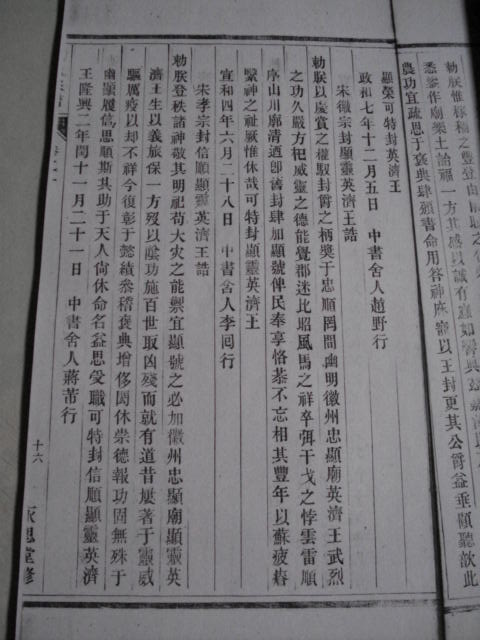 勅朕惟稼穡之豐登由
悉爰作廟樂土詒福一方其感以誠有直如響與
農功宜疏恩于袞典肆頒書命用答神庥當以王封更其公爵益垂顧聽歆此
顯榮可特封英濟王
政和七年十二月五日 中書舍人趙野行
宋徽宗封顯靈英濟王誥
勅朕以慶賞之權馭封爵之柄奬于忠順罔間幽明徽州忠顯廟英濟王武烈
之功久嚴方祀威靈之德能覺郡迷比昭風馬之祥卒弭干戈之悖雲雷順
序山川廓清迺卽舊封肆加顯號俾民奉享恪恭不忘相其豐年以蘇疲瘠
繄神之祉厥惟休哉可特封顯靈英濟王
宣和四年六月二十八日 中書舍人李囘行
宋孝宗封信順顯靈英濟王誥
勅朕登秩諸神敬其明祀苟大灾之能禦宜顯號之必加徽州忠顯廟顯靈英
濟王生以義旅保一方歿以陰功施百世取凶殘而就有道昔旣著于靈威
驅厲疫以却不祥今復彰于懿績叅稽袞典增侈閎休崇德報功固無殊于
幽顯履信思順斯其助于天人尙休命名益思受職可特封信順顯靈英濟
王隆興二年閏十一月二十一日 中書舍人蔣芾行
十六
思堂修